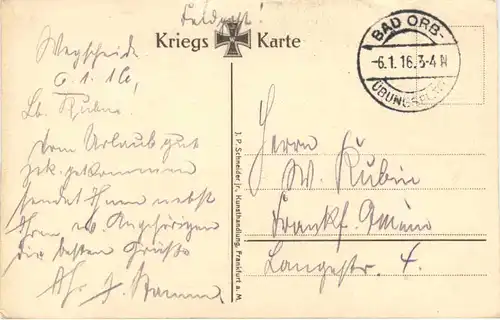 Feldpost!
Kriegs Karte
Wegscheide
6.1.16,
Lb. Rubin
Vom Urlaub gut
zck. gekommen
sendet Ihnen nebst
Ihren w. Angehörigen
die besten Grüsse
Ihr J.
BAD ORB
-6.1.16.3-4 N
ÜBUNGSPLATZ
Herrn
W. Rubin
Frankf. a/Main
Langestr. 4.
J. P. Schneider jr., Kunsthandlung, Frankfurt a. M.